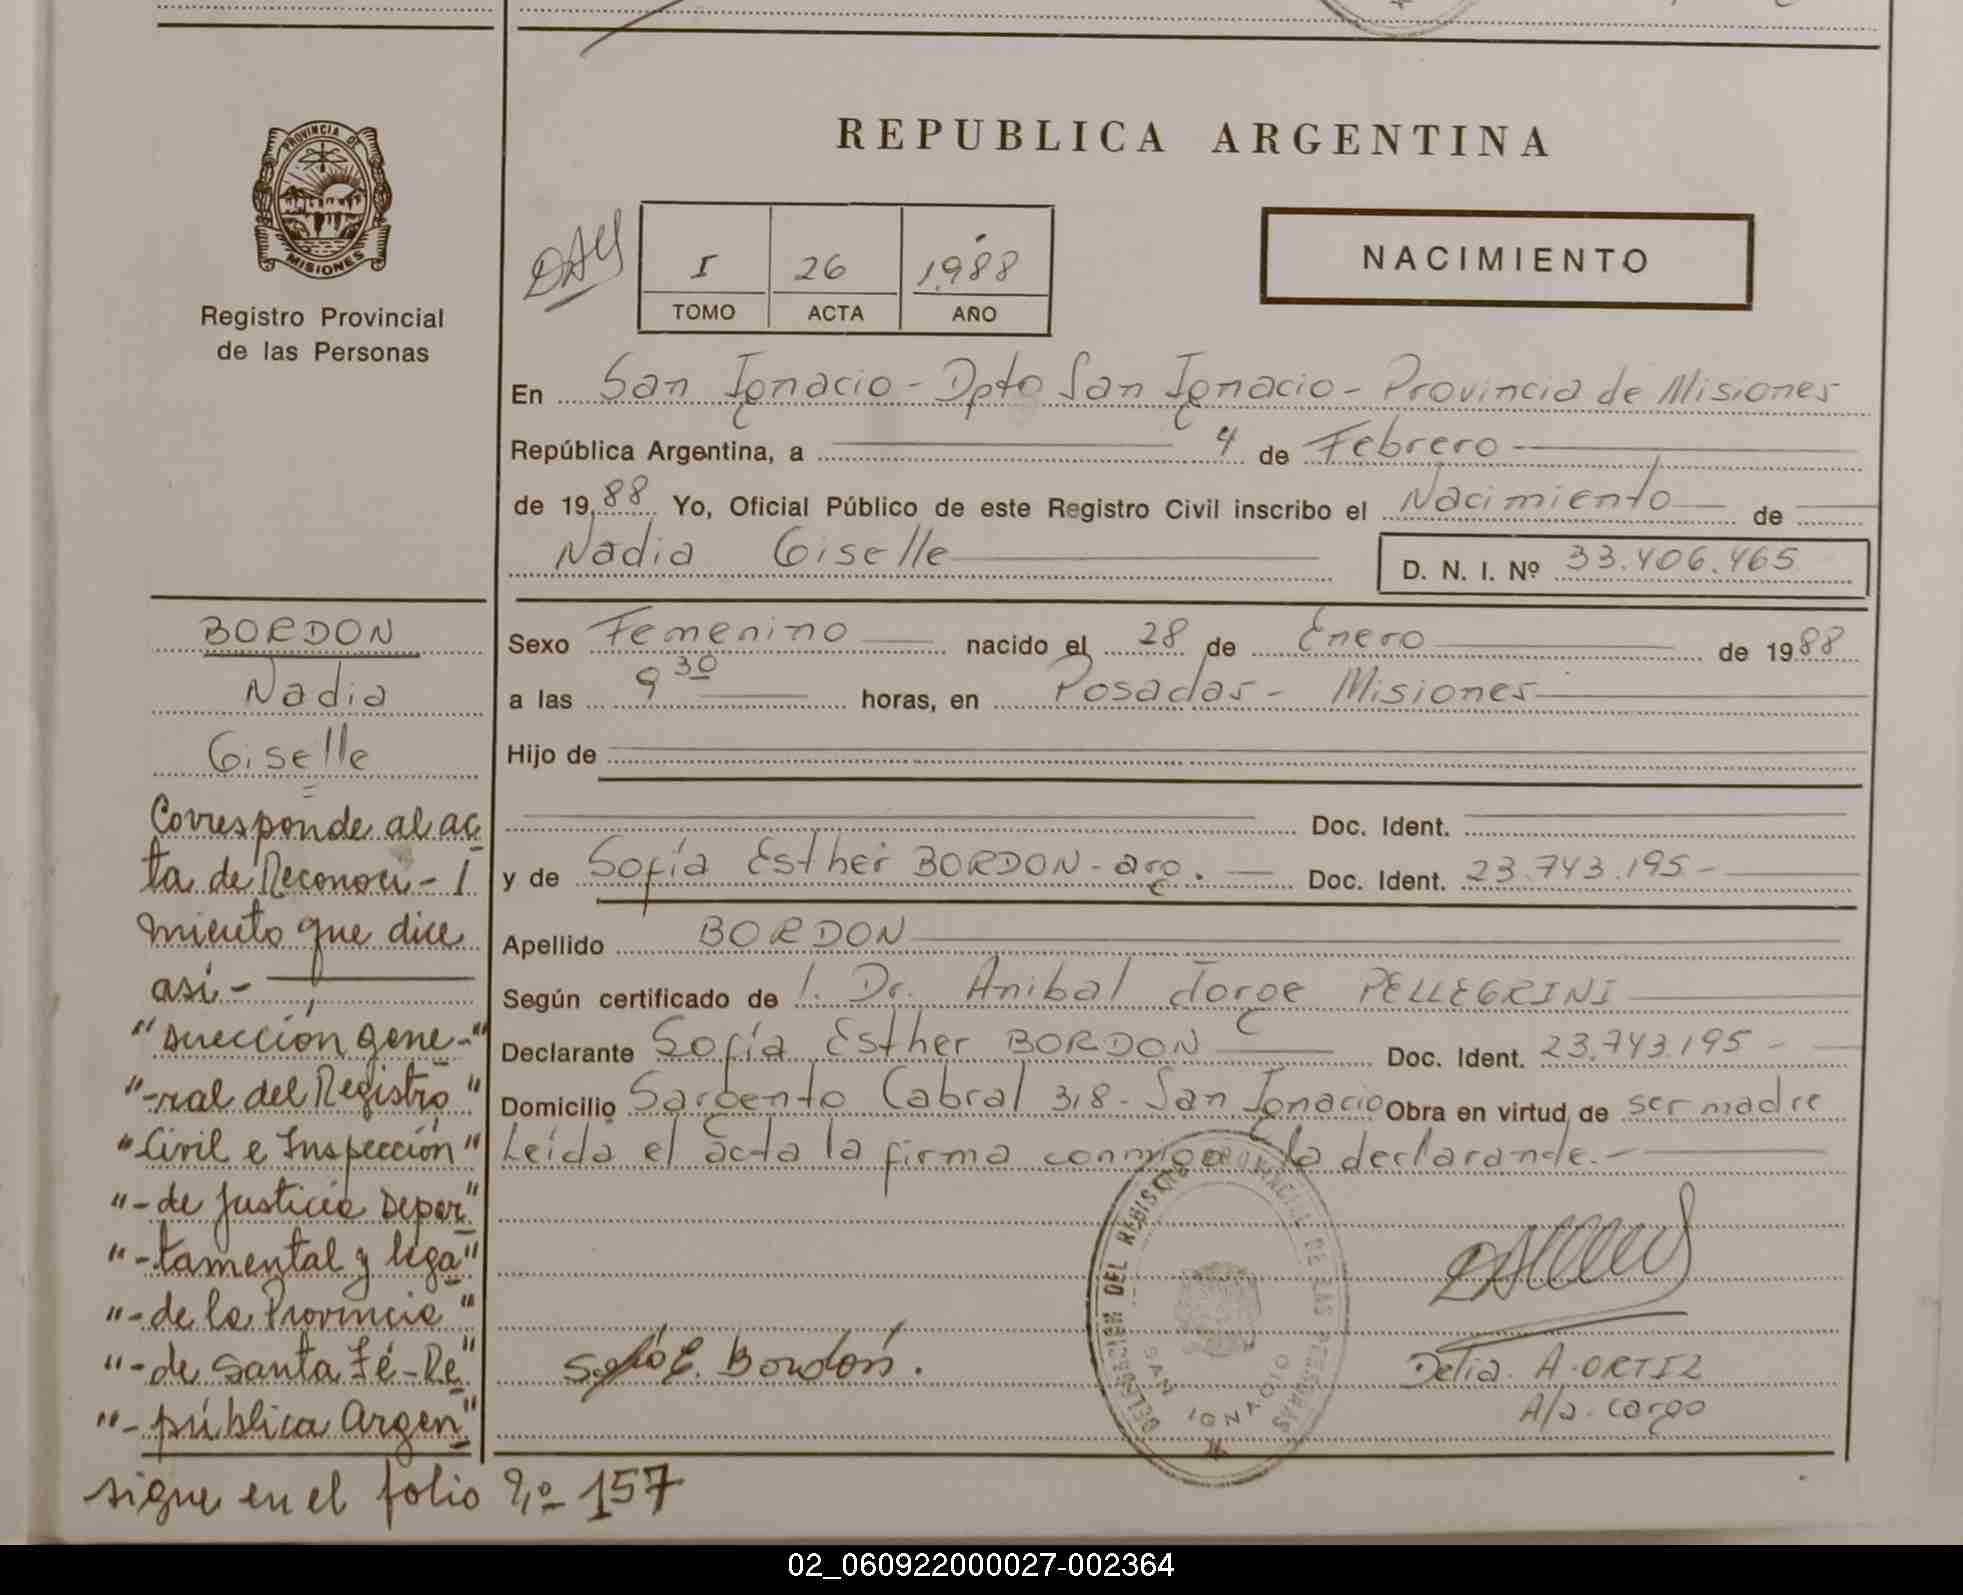 PROVINCIA DE
MISIONES
Registro Provincial
de las Personas
REPUBLICA ARGENTINA
I 26 1988
TOMO ACTA AÑO
NACIMIENTO
En San Ignacio - Dpto San Ignacio - Provincia de Misiones
República Argentina, a 4 de Febrero
de 1988 Yo, Oficial Público de este Registro Civil inscribo el Nacimiento de
Nadia Giselle D. N. I. Nº 33.406.465
Sexo Femenino nacido el 28 de Enero de 1988
a las 9 30 horas, en Posadas - Misiones
Hijo de
Doc. Ident.
y de Sofía Esther BORDON - arg. Doc. Ident. 23.743.195 -
Apellido BORDON
Según certificado de 1. Dr. Anibal Jorge PELLEGRINI
Declarante Sofía Esther BORDON Doc. Ident. 23.743.195 -
Domicilio Sargento Cabral 318 - San Ignacio Obra en virtud de ser madre
Leída el acta la firma conmigo la declarande. -
DELEGACION DEL REGISTRO PROVINCIAL DE LAS PERSONAS
SAN IGNACIO
Sofía E. Bordón.
Delia A. ORTIZ
A/a. cargo
BORDON
Nadia
Giselle
Corresponde al ac
ta de Reconoci - /
miento que dice
asi -
"Dirección gene-"
"-ral del Registro"
"Civil e Inspección"
"-de Justicia Depar"
"-tamental y lega"
"-de la Provincia"
"-de Santa Fé - Re"
"-pública Argen"
sigue en el folio nº 157
02_060922000027-002364